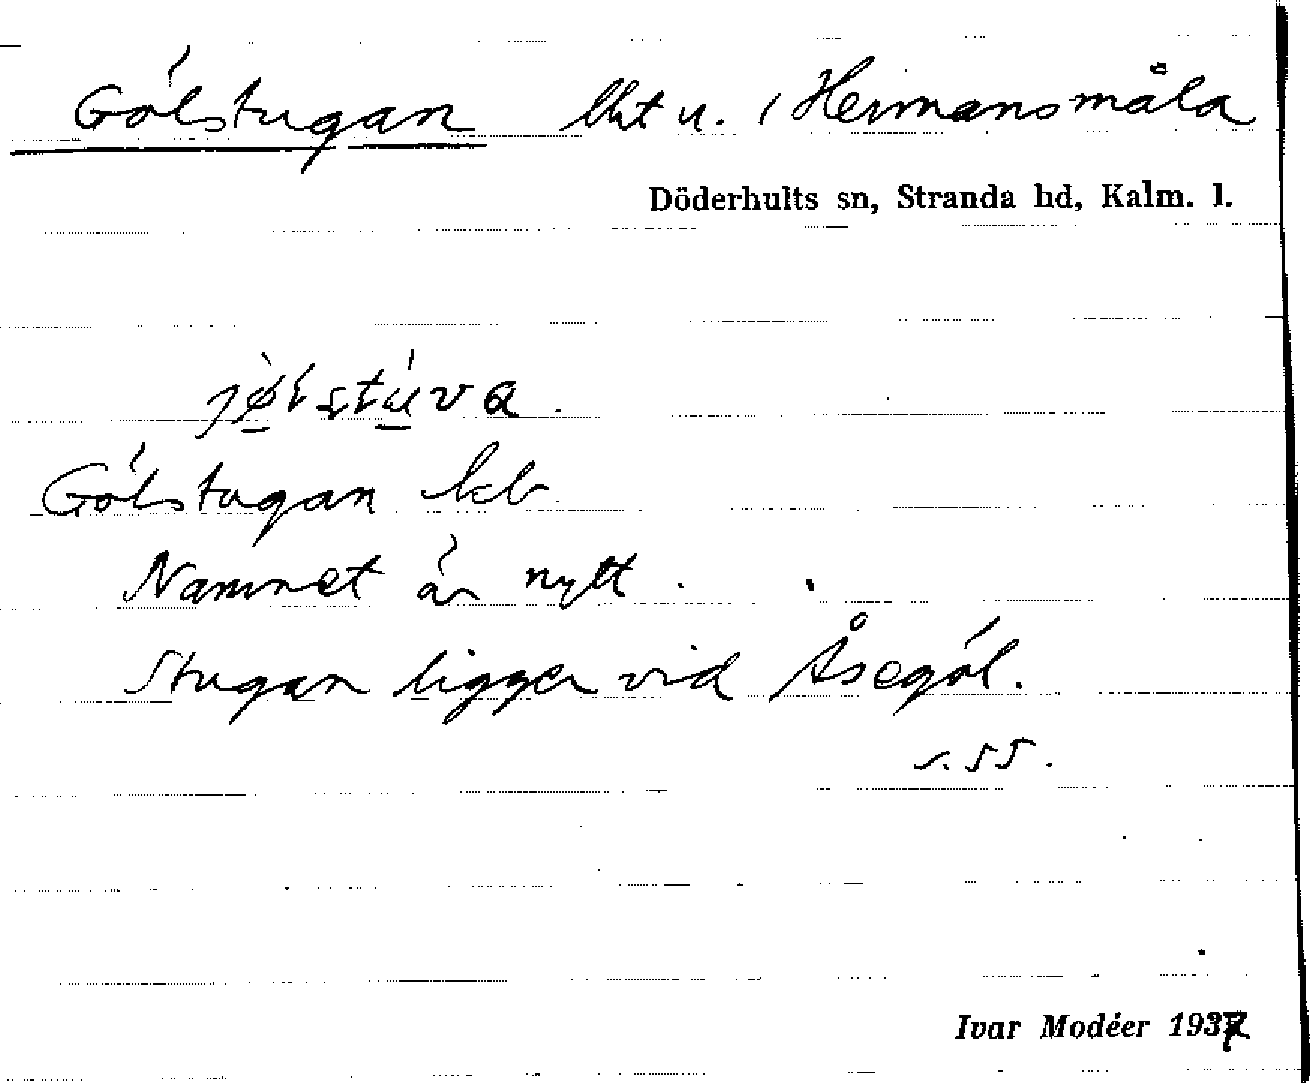 Gölstugan lht u. Hermansmåla
Döderhults sn, Stranda hd, Kalm. l.
Gölstugan
Namnet är nytt.
Stugan ligger vid Åsegöl.
s. 55.
Ivar Modéer 1937